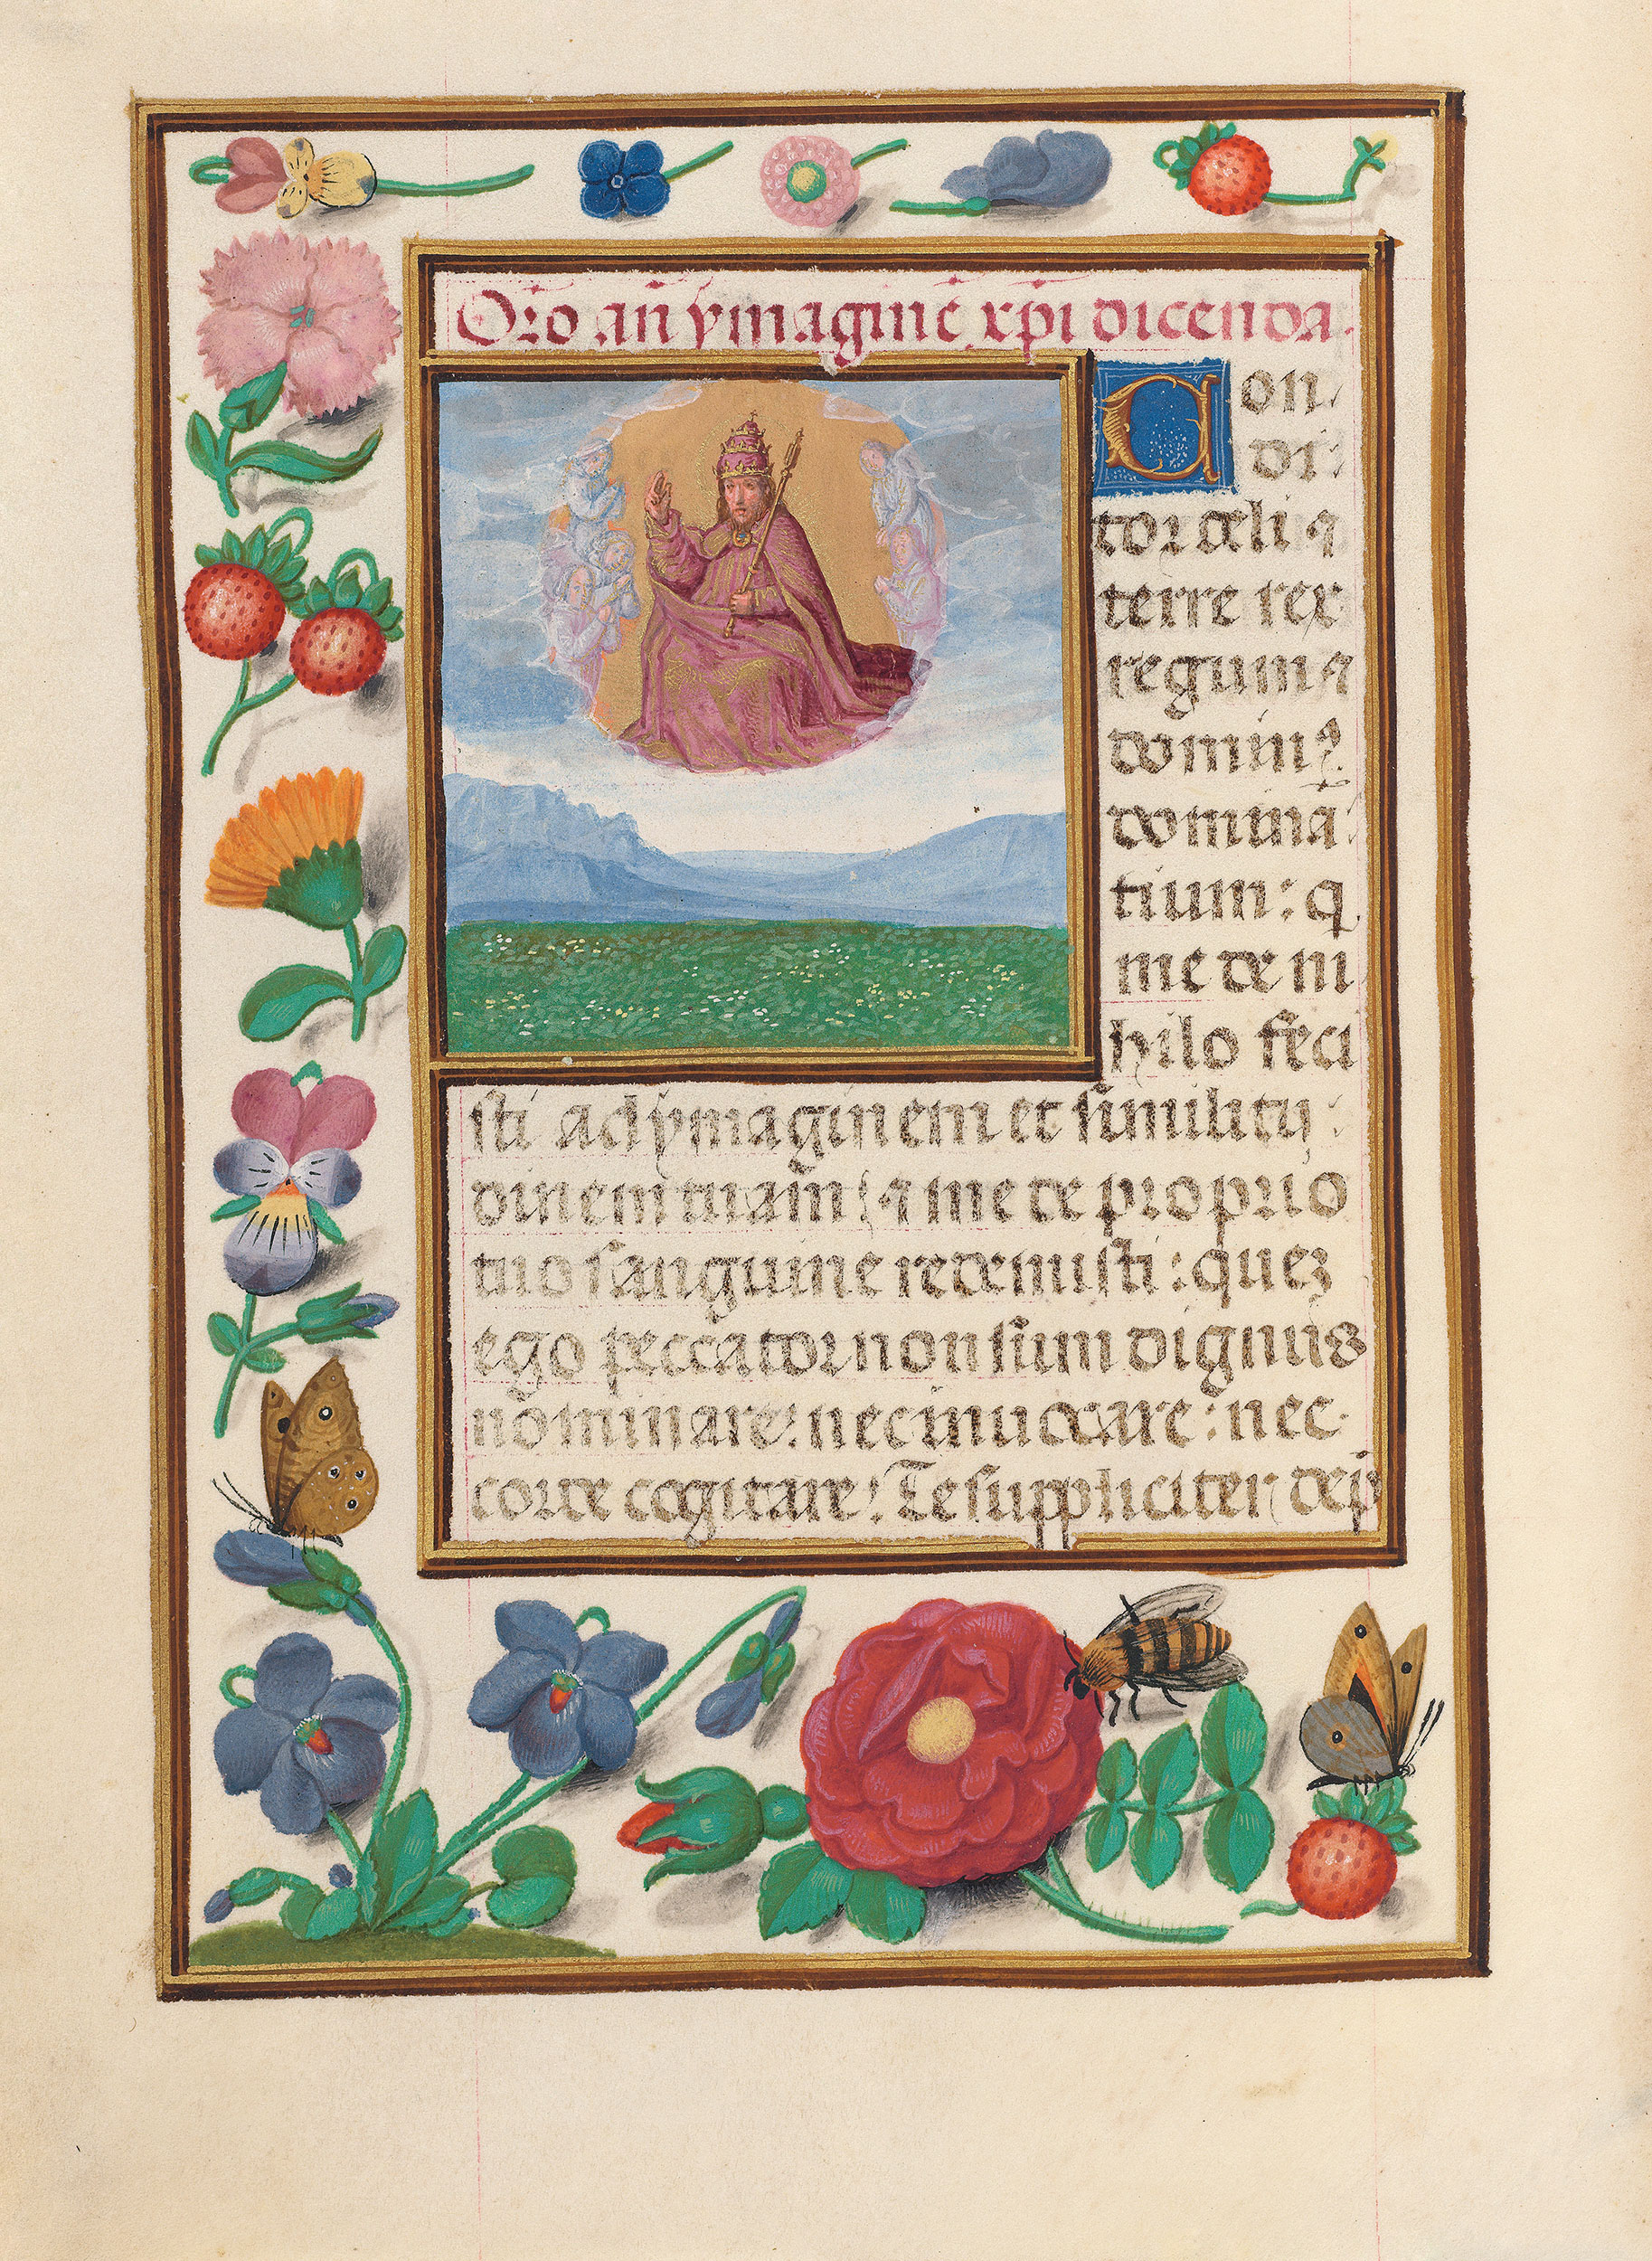 Oro añ ymaginē xpi dicenda.
Con
di:
tor celi ⁊
terre rex
regum ⁊
domin⁹
domina
tium: q
me de ni
hilo feci
sti ad ymaginem et similitu
dinem tuam: ⁊ me de proprio
tuo sanguine redemisti: quez
ego peccator non sum dignus
nominare: nec inuocare: nec
corde cogitare: Te suppliciter dep